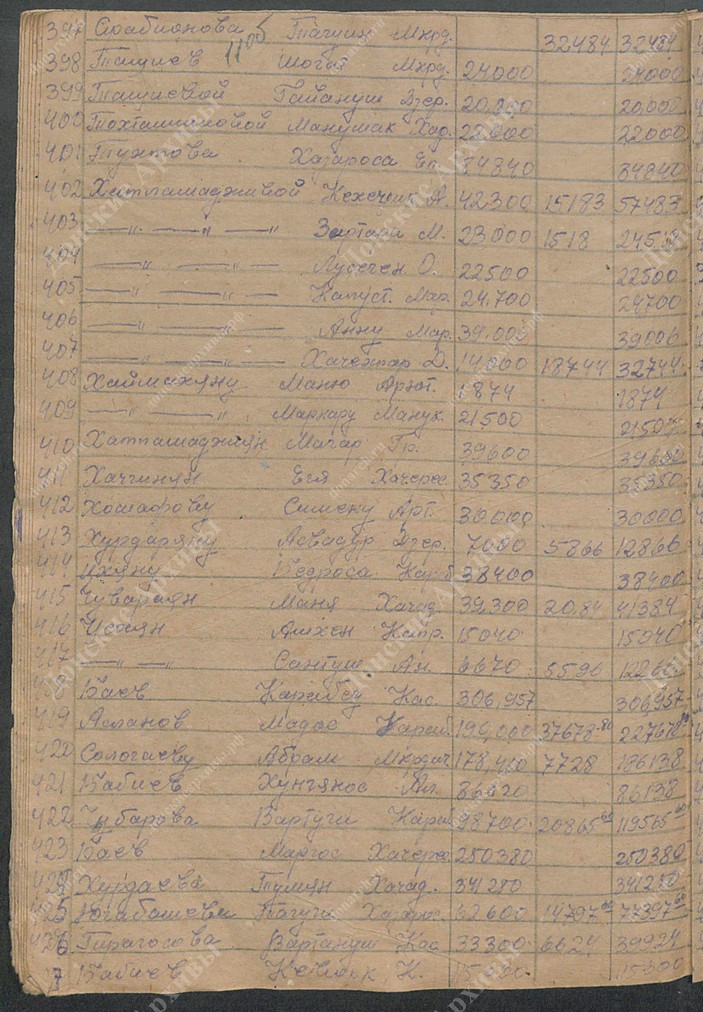 397 Скабионова Тагуш Мкрд. 32484 32484
1106
398 Тащиев Шогат Мкрд. 24000 24000
399 Тащиевой Гаянуш Дзер. 20.000 20.000
400 Тохтамышовой Манушак Хад. 22000 22000
401 Тухтова Хазароса Еп. 34840 34840
402 Хатламаджиевой Кехечик А. 42300 15183 57483
403 —"— —"— —"— Зартари М. 23000 1518 24518
404 —"— —"— Лусеген О. 22500 22500
405 —"— —"— Капуст. Мар. 24.700 24700
406 —"— —"— Анну Мар. 39.000 39000
407 —"— —"— Хачехпар Д. 14000 18744 32744
408 Хаймахяну Маню Арют. 1874 1874
409 —"— —"— Маркару Манук. 21500 21500
410 Хатламаджиян Магар Гр. 39600 39600
411 Хачгинян Егя Хачерес 35350 35350
412 Хошафову Симону Арт. 30000 30000
413 Хурдаряну Асвадур Дзер. 7000 5866 12866
414 Цхяну Бедроса Кар.б 38400 38400
415 Чуварьян Маня Хачад. 39300 2084 41384
416 Чебиян Ашхен Капр. 15040 15040
417 —"— —"— Сантуш Ан. 6670 5590
418 Баев Карабед Кас. 306,957 306,957
419 Асланов Мадос Караб 190,000 37678.80 227678.80
420 Сологаеву Абрам Мкрдич 178,410 7728 186138
421 Бабиев Хунгянос Ал. 86620 86138
422 Чубарова Вартуги Караб 98700 20865 60 119565 60
423 Баев Маргос Хачерес 250380 250380
424 Хурдаева Тумиян Хачад. 341280 341280
425 Югабашева Тагуги Хазарос. 62600 14797 60 77397 60
426 Тирагосова Вартануш Кас. 33300 6624 39924
7 Бабиев Кеворк К. 15300